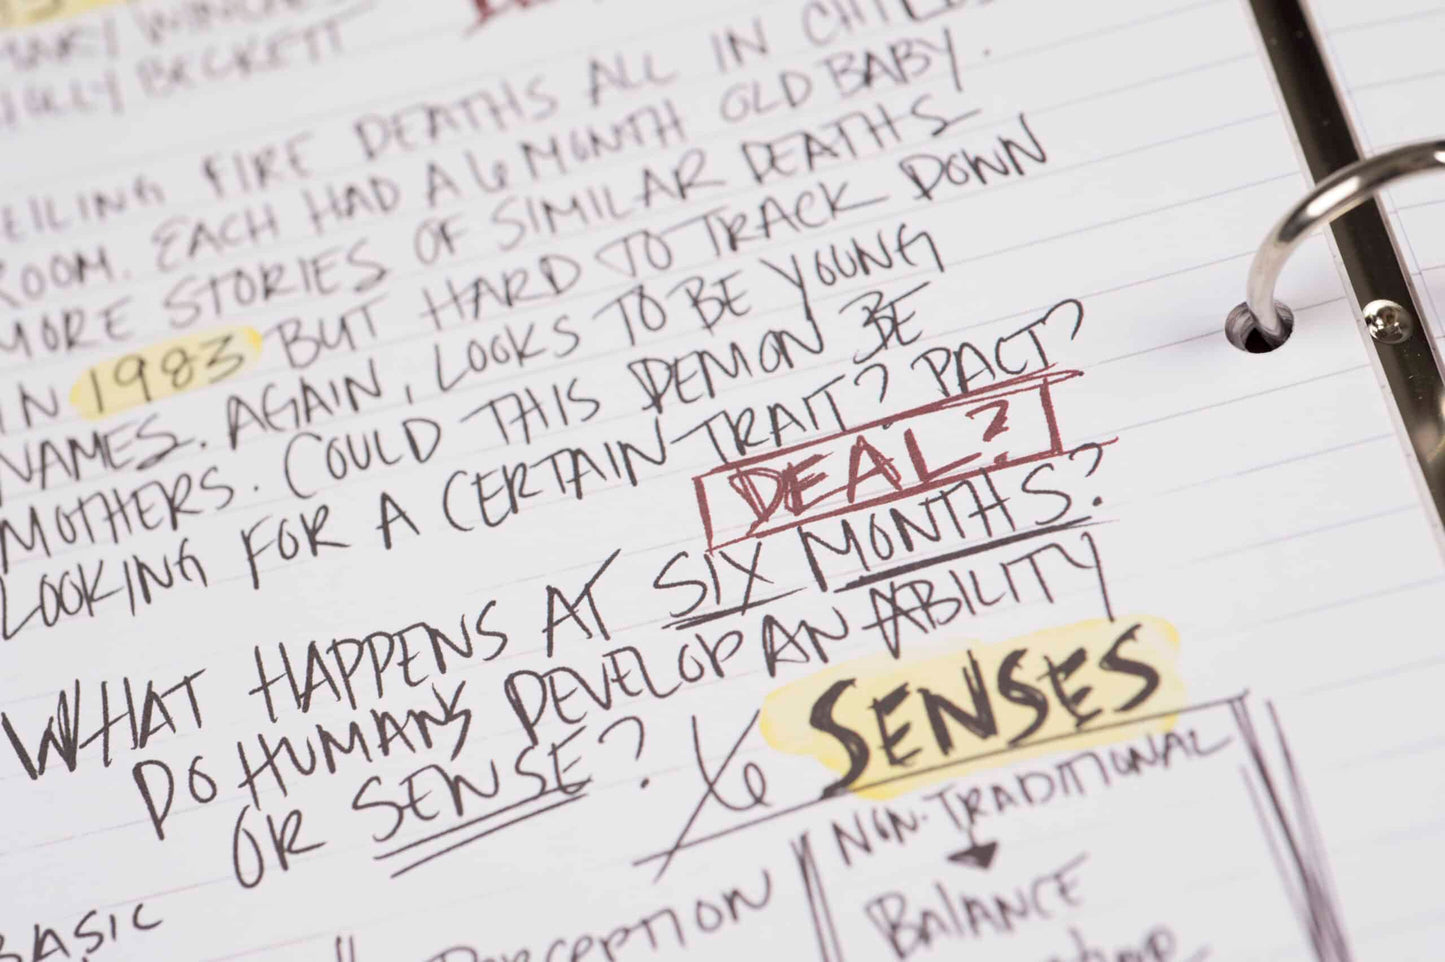 BECKETT
CEILING FIRE DEATHS ALL IN
ROOM. EACH HAD A 6 MONTH OLD BABY.
MORE STORIES OF SIMILAR DEATHS
IN 1983 BUT HARD TO TRACK DOWN
NAMES. AGAIN, LOOKS TO BE YOUNG
MOTHERS. COULD THIS DEMON BE
LOOKING FOR A CERTAIN TRAIT? PACT?
DEAL?
WHAT HAPPENS AT SIX MONTHS?
DO HUMANS DEVELOP AN ABILITY
OR SENSE? 6 SENSES
NON-TRADITIONAL
BASIC
PERCEPTION
BALANCE